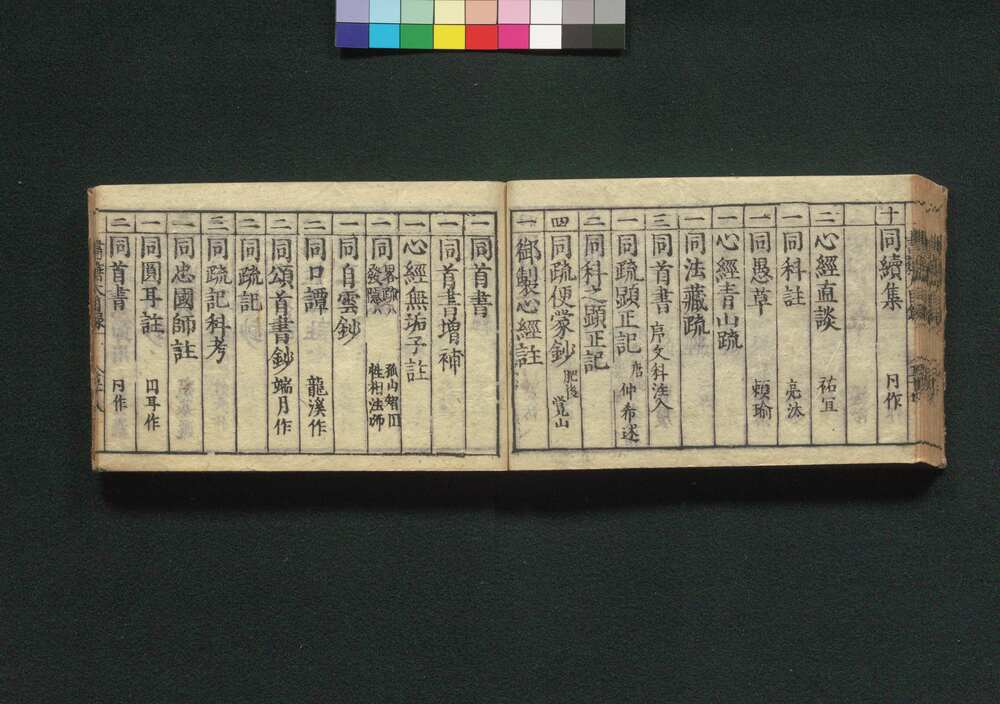 十 同續集 同作
二 心經直談 祐宜
一 同科註 亮汰
一 同愚草 頼瑜
一 心經青山疏
一 同法藏疏
三 同首書 序文科注入
一 同疏顕正記 唐 仲希述
二 同科之顕正記
四 同疏便蒙鈔 肥後 覚山
一 御製心經註
一 同首書
一 同首書増補
一 心經無垢子註
一 同 畧疏 發隱 孤山智圓
一 同自雲鈔
二 同口譚 龍溪作
二 同頌首書鈔 端月作
二 同疏記
三 同疏記科考
一 同忠國師註
一 同圓耳註 円耳作
二 同首書 同作